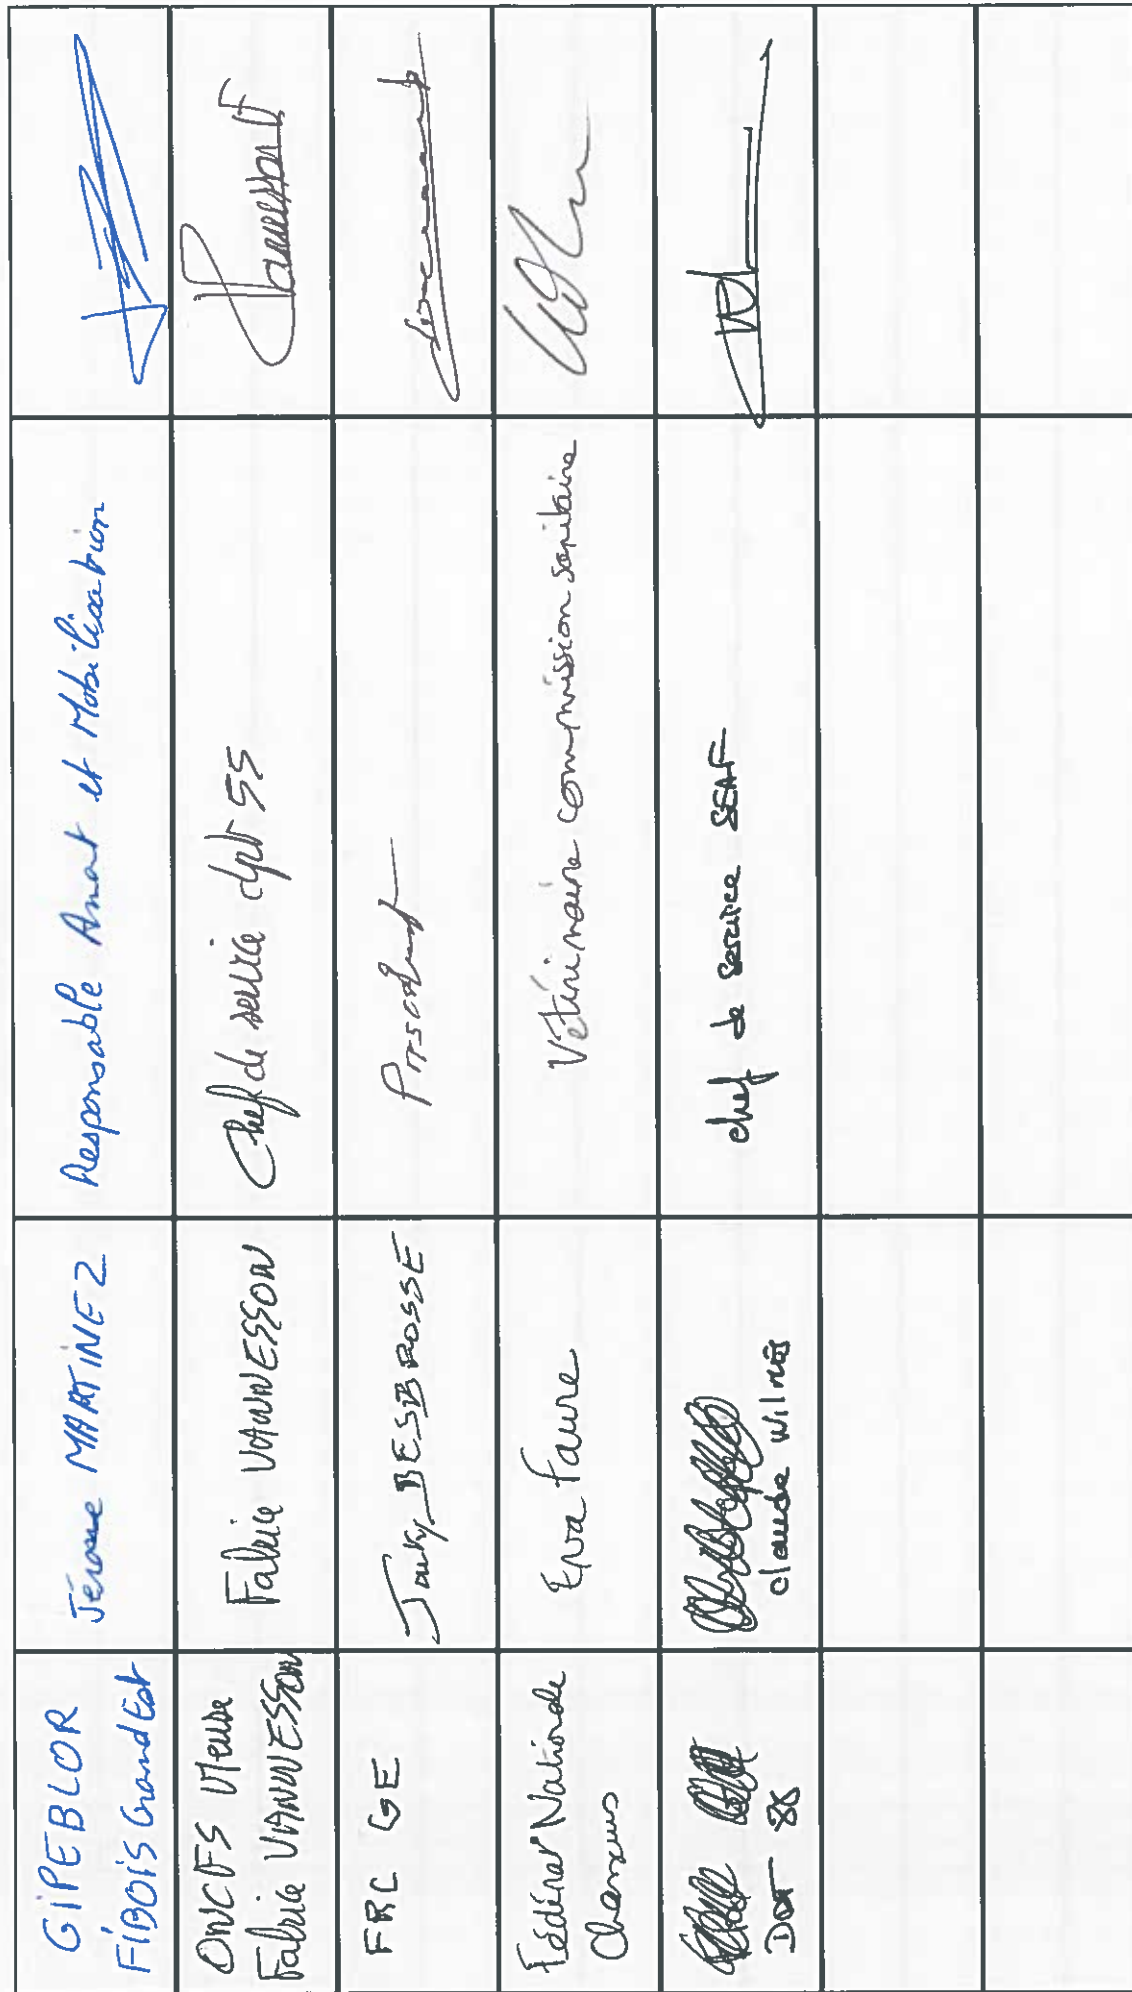 GIPEBLOR
FIBOIS Grand Est
Jérome MARTINEZ
Responsable Amont et Mobilisation
ONCFS Meuse
Fabrice VANNESSON
Fabrice VANNESSON
Chef de service dpt 55
FRC GE
Jacky DESBROSSE
Président
Fédérat° Nationale
Chasseurs
Eva Faure
Vétérinaire commission sanitaire
claude Wilmes
chef de service SEAF